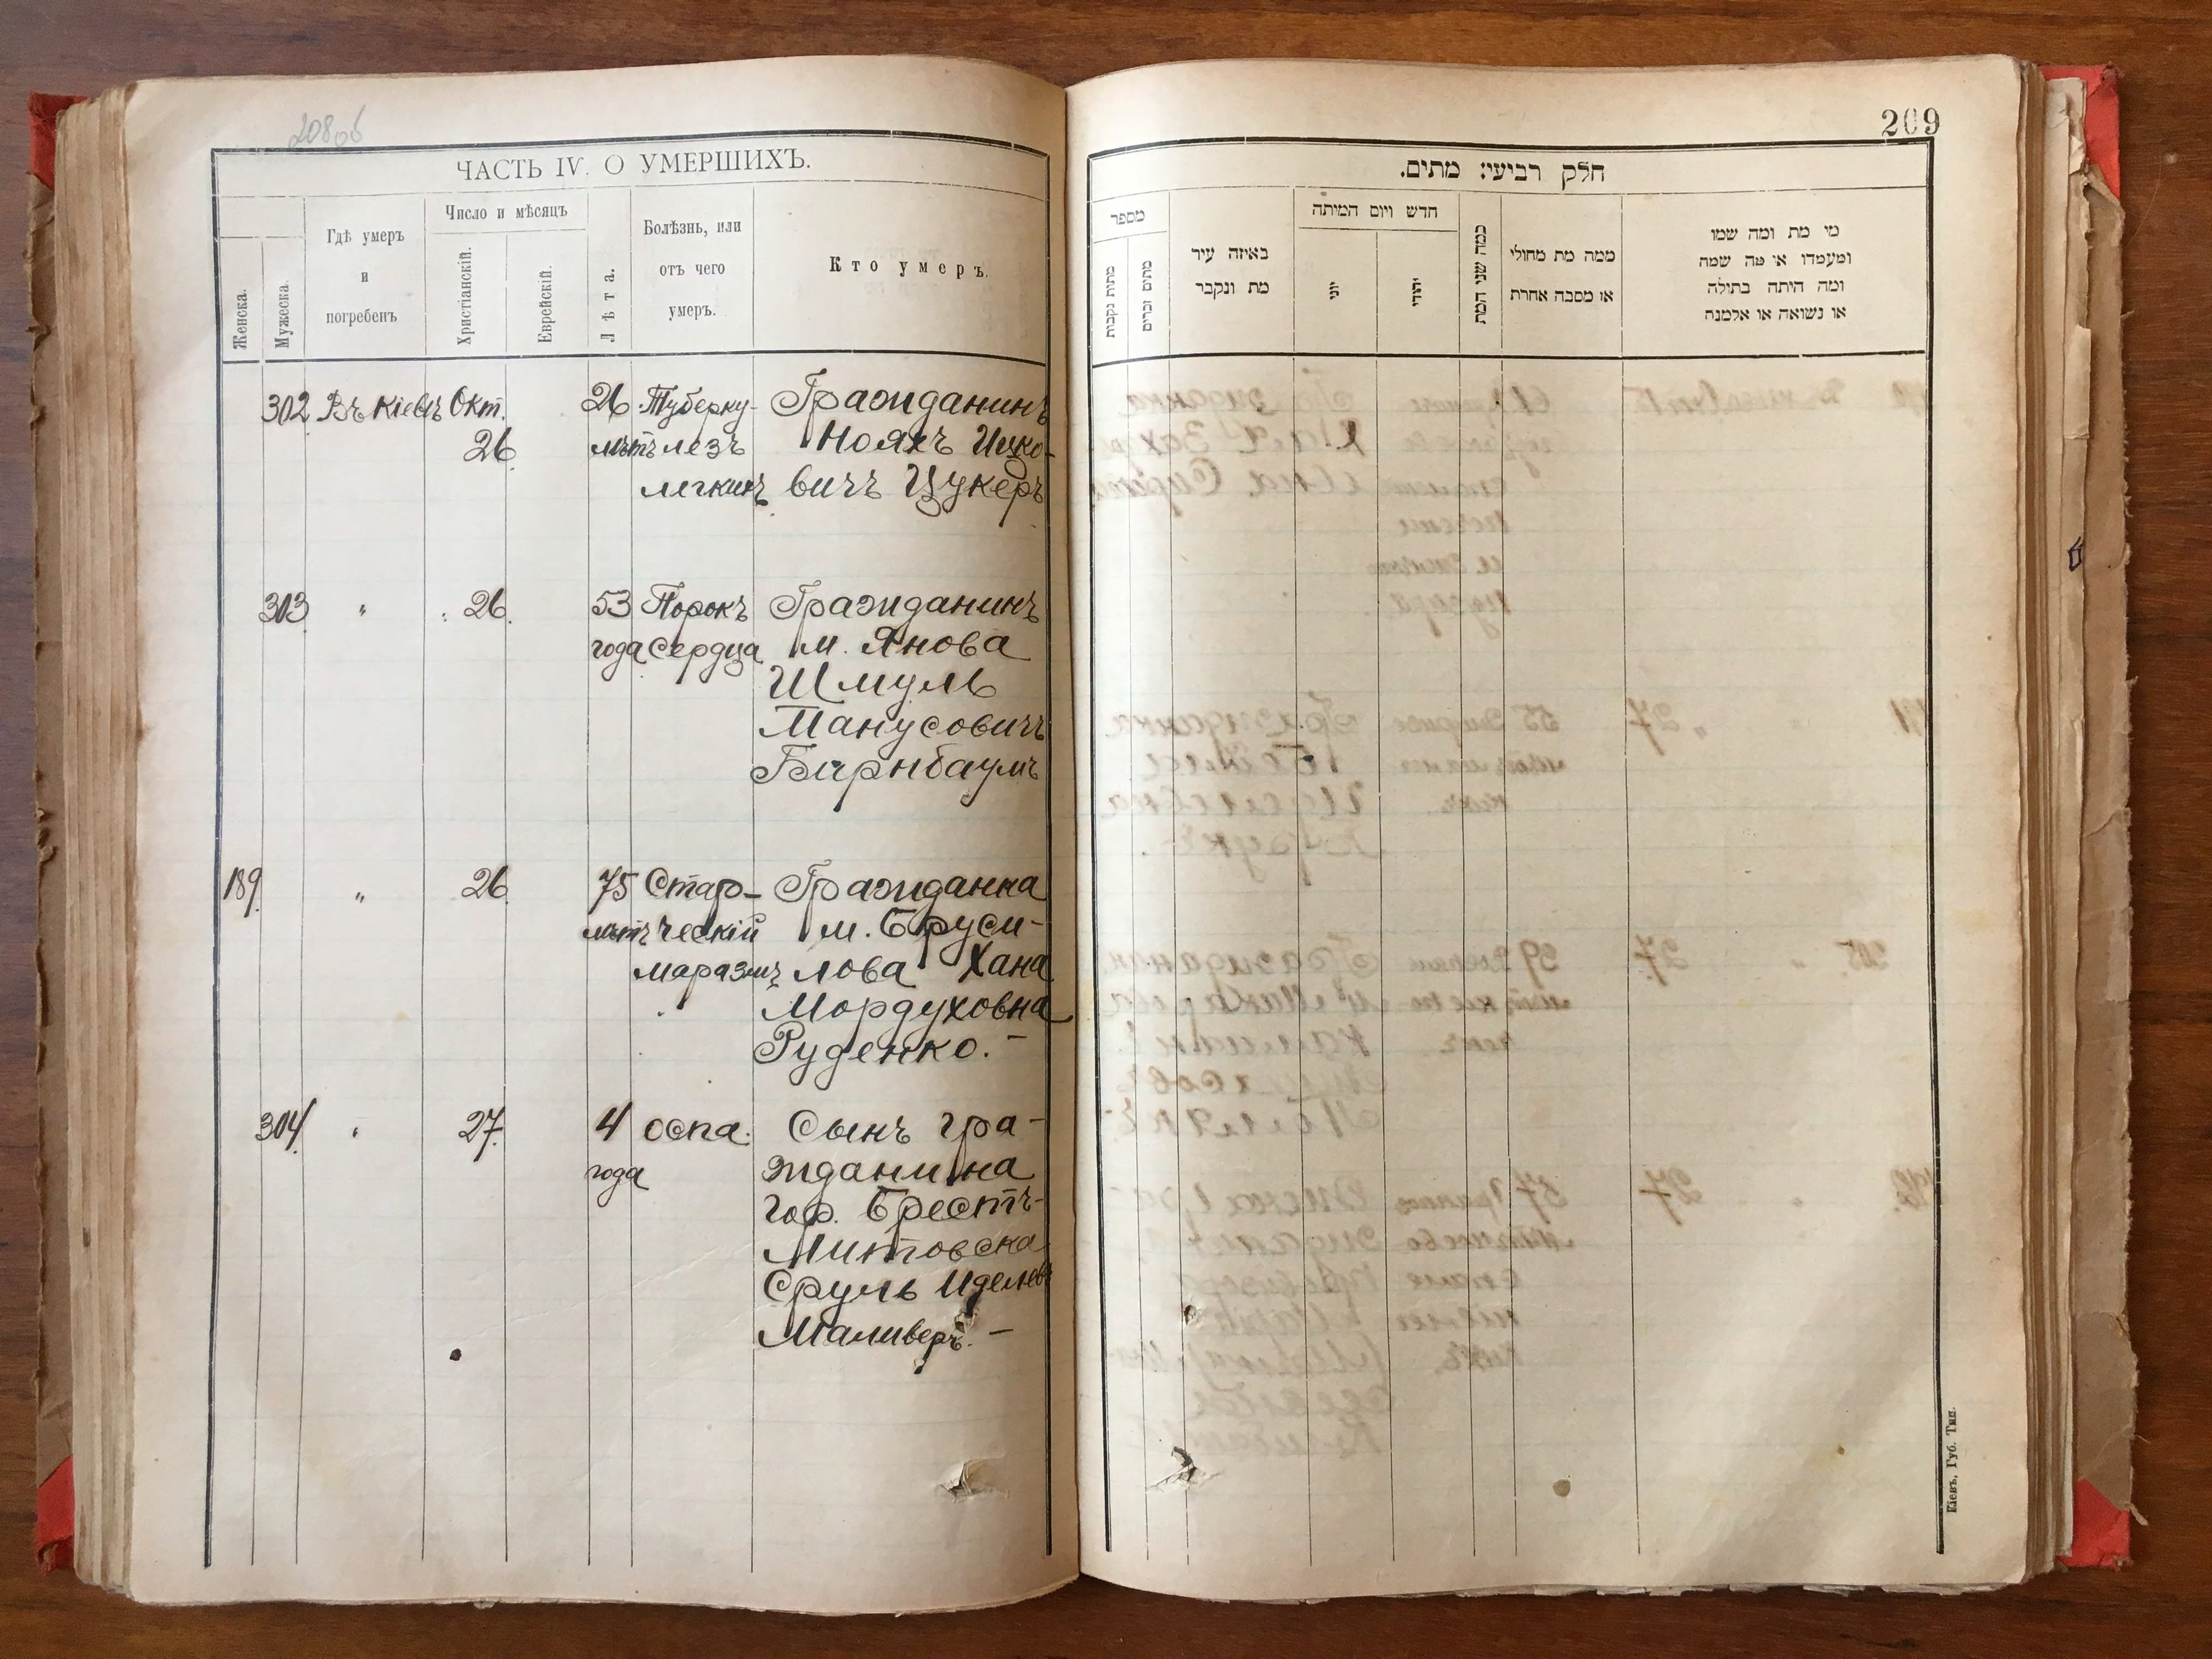 208об
ЧАСТЬ IV. О УМЕРШИХЪ.
Женска.
Мужеска.
Гдѣ умеръ
и
погребенъ
Число и мѣсяцъ
Христіанскій.
Еврейскій.
Лѣта.
Болѣзнь, или
отъ чего
умеръ.
Кто умеръ.
302 Въ Кіевѣ Окт. 26 Туберку- Гражданинъ
26 лѣтъ лезъ Ноахъ Ицко-
легкихъ вичъ Цукеръ
303 " " 26. 53 Порокъ Гражданинъ
года Сердца м. Янова
Шмуль
Манусовичъ
Бирнбаумъ
189 " 26 75 Старо- Гражданка
лѣтъ ческій м. Бруси-
маразмъ лова Хана
Мордуховна
Руденко. -
304 " 27. 4 оспа. Сынъ гра-
года жданина
гор. Брестъ-
Литовска
Сруль Иделев
Маливеръ. -
209
חלק רביעי: מתים.
מספר
מתות נקבות
מתים זכרים
באיזה עיר
מת ונקבר
חדש ויום המיתה
יוני
יהודי
כמה שני המת
ממה מת מחולי
או מסבה אחרת
מי מת ומה שמו
ומעמדו או מה שמה
ומה היתה בתולה
או נשואה או אלמנה
Кіевъ, Губ. Тип.